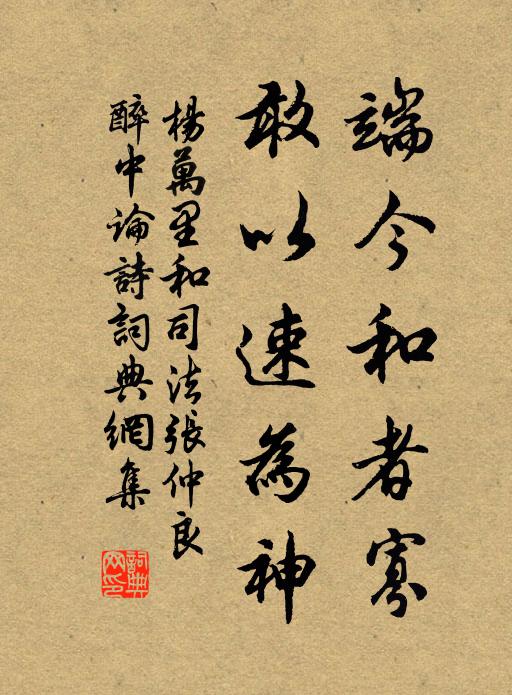 端今和者寡
敢以速為神
楊萬里和司法張仲良
醉中論詩詞典網集
詞典網印